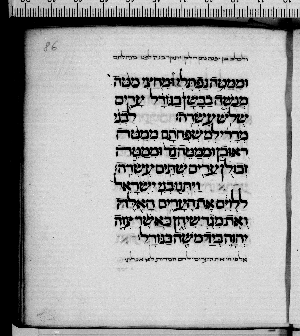 86
וממטה נפתלי ומחצי מטה
מנשה בבשן בגורל ערים
שלש עשרה׃ לבני
מררי למשפחתם ממטה
ראובן וממטה גד וממטה
זבולן ערים שתים עשרה׃
ויתנו בני ישראל
ללוים את הערים האלה
ואת מגרשיהן כאשר צוה
יהוה ביד משה בגורל׃